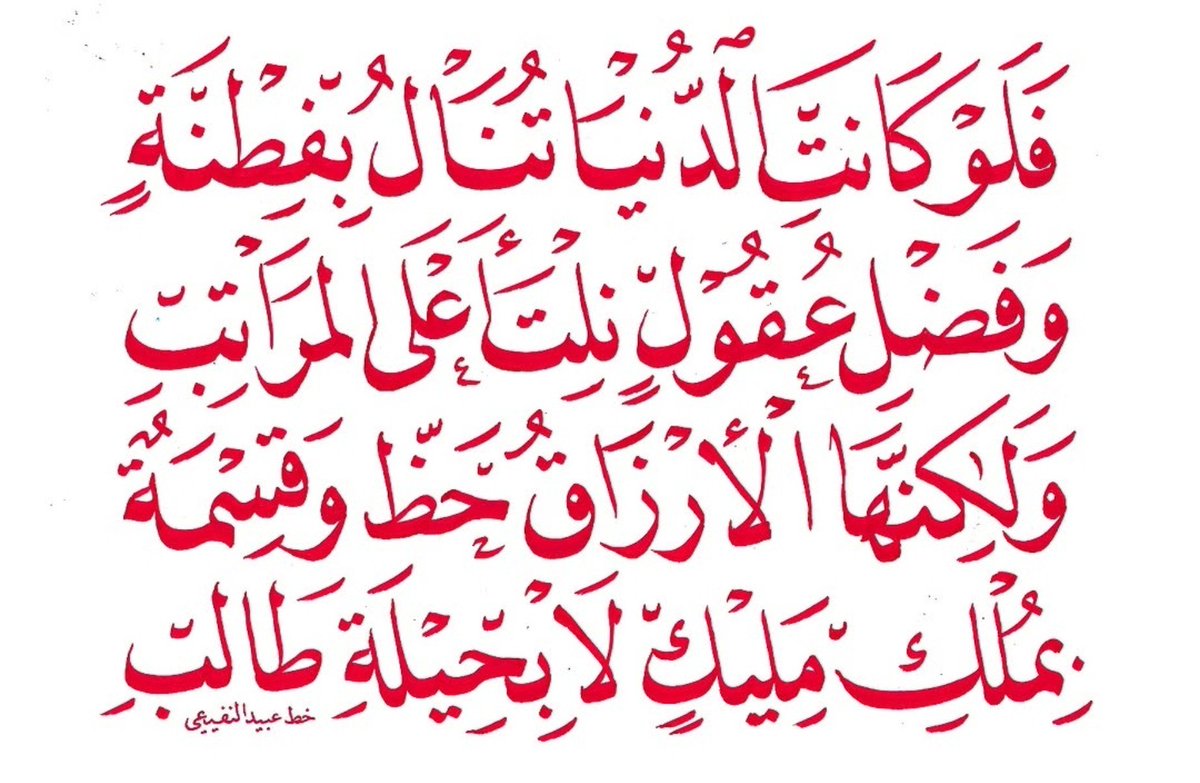 فَلَوْ كَانَتَ الدُّنْيَا تُنَالُ بِفِطْنَةٍ
وَفَضْلِ عُقُولٍ نِلْتَ أَعْلَى الْمَرَاتِبِ
وَلَكِنَّهَا الْأَرْزَاقُ حَظٌّ وَقِسْمَةٌ
بِمُلْكِ مَلِيْكٍ لَا بِحِيْلَةِ طَالِبِ
خط عبيد النفيعي